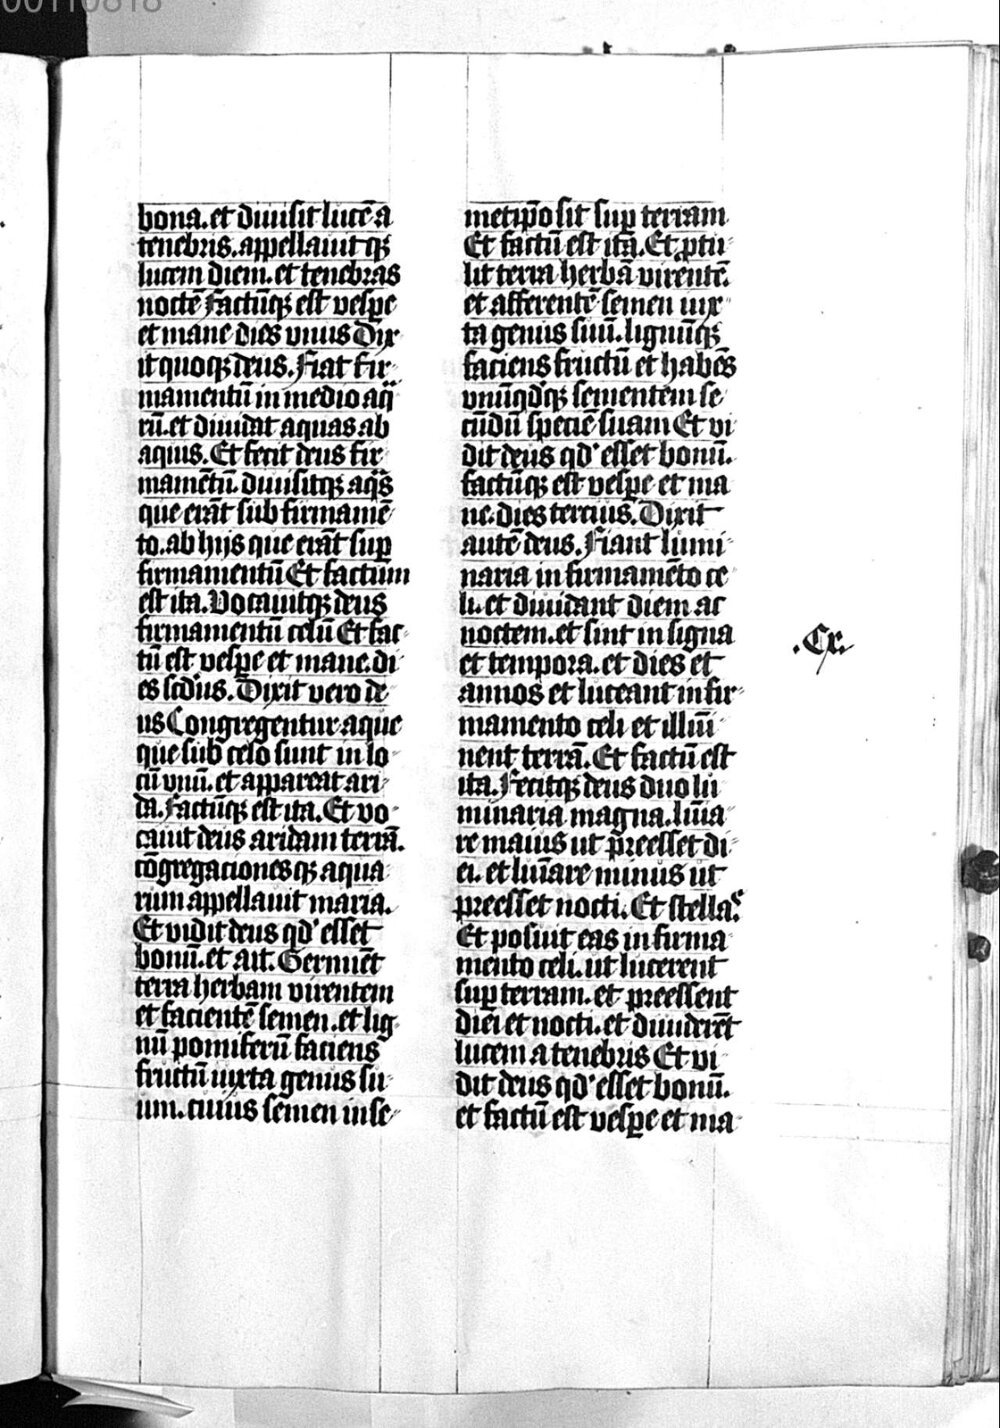 00110818
bona. et diuisit lucē a
tenebris. appellauitqꝫ
lucem diem. et tenebras
noctē Factūqꝫ est vespe
et mane dies vnius Dix⸗
it quoqꝫ deus. Fiat fir⸗
mamentū in medio aqͣ⸗
rū. et diuidat aquas ab
aquis. Et fecit deus fir⸗
mamētū. diuisitqꝫ aqͣs
que erāt sub firmamē⸗
to. ab hijs que erāt suꝑ
firmamentū Et factum
est ita. Vocauitqꝫ deus
firmamentū celū Et fac⸗
tū est vesꝑe et mane. di⸗
es scd'us. Dixit vero de⸗
us Congregentur aque
que sub celo sunt in lo⸗
cū vnū. et appareat ari⸗
da. Factūqꝫ est ita. Et vo⸗
cauit deus aridam terrā.
cōgregacionesqꝫ aqua⸗
rum appellauit maria.
Et vidit deus qd' esset
bonū. et ait. Germiēt
terra herbam virentem
et facientē semen. et lig⸗
nū pomiferū faciens
fructū iuxta genus su⸗
um. cuius semen in se⸗
metip̄o sit suꝑ terram
Et factū est ita. Et ꝓtu⸗
lit terra herbā virentē.
et afferentē semen iux⸗
ta genus suū. lignūqꝫ
faciens fructū et habēs
vnūqd'qꝫ sementem se⸗
cūdū speciē suam Et vi⸗
dit deus qd' esset bonū.
factūqꝫ est vesꝑe et ma⸗
ne. dies tercius. Dixit
autē deus. Fiant lumi⸗
naria in firmamēto ce⸗
li. et diuidant diem ac
noctem. et sint in signa
et tempora. et dies et
annos et luceant in fir⸗
mamento celi et illuī⸗
nent terrā. Et factū est
ita. Fecitqꝫ deus duo lu⸗
minaria magna. luīa⸗
re maius ut p̄reesset di⸗
ei. et luīare minus ut
preesset nocti. Et stellas.
Et posuit eas in firma⸗
mento celi. ut lucerent
suꝑ terram. et preessent
diei et nocti. et diuiderēt
lucem a tenebris Et vi⸗
dit deus qd' esset bonū.
et factū est vesꝑe et ma⸗